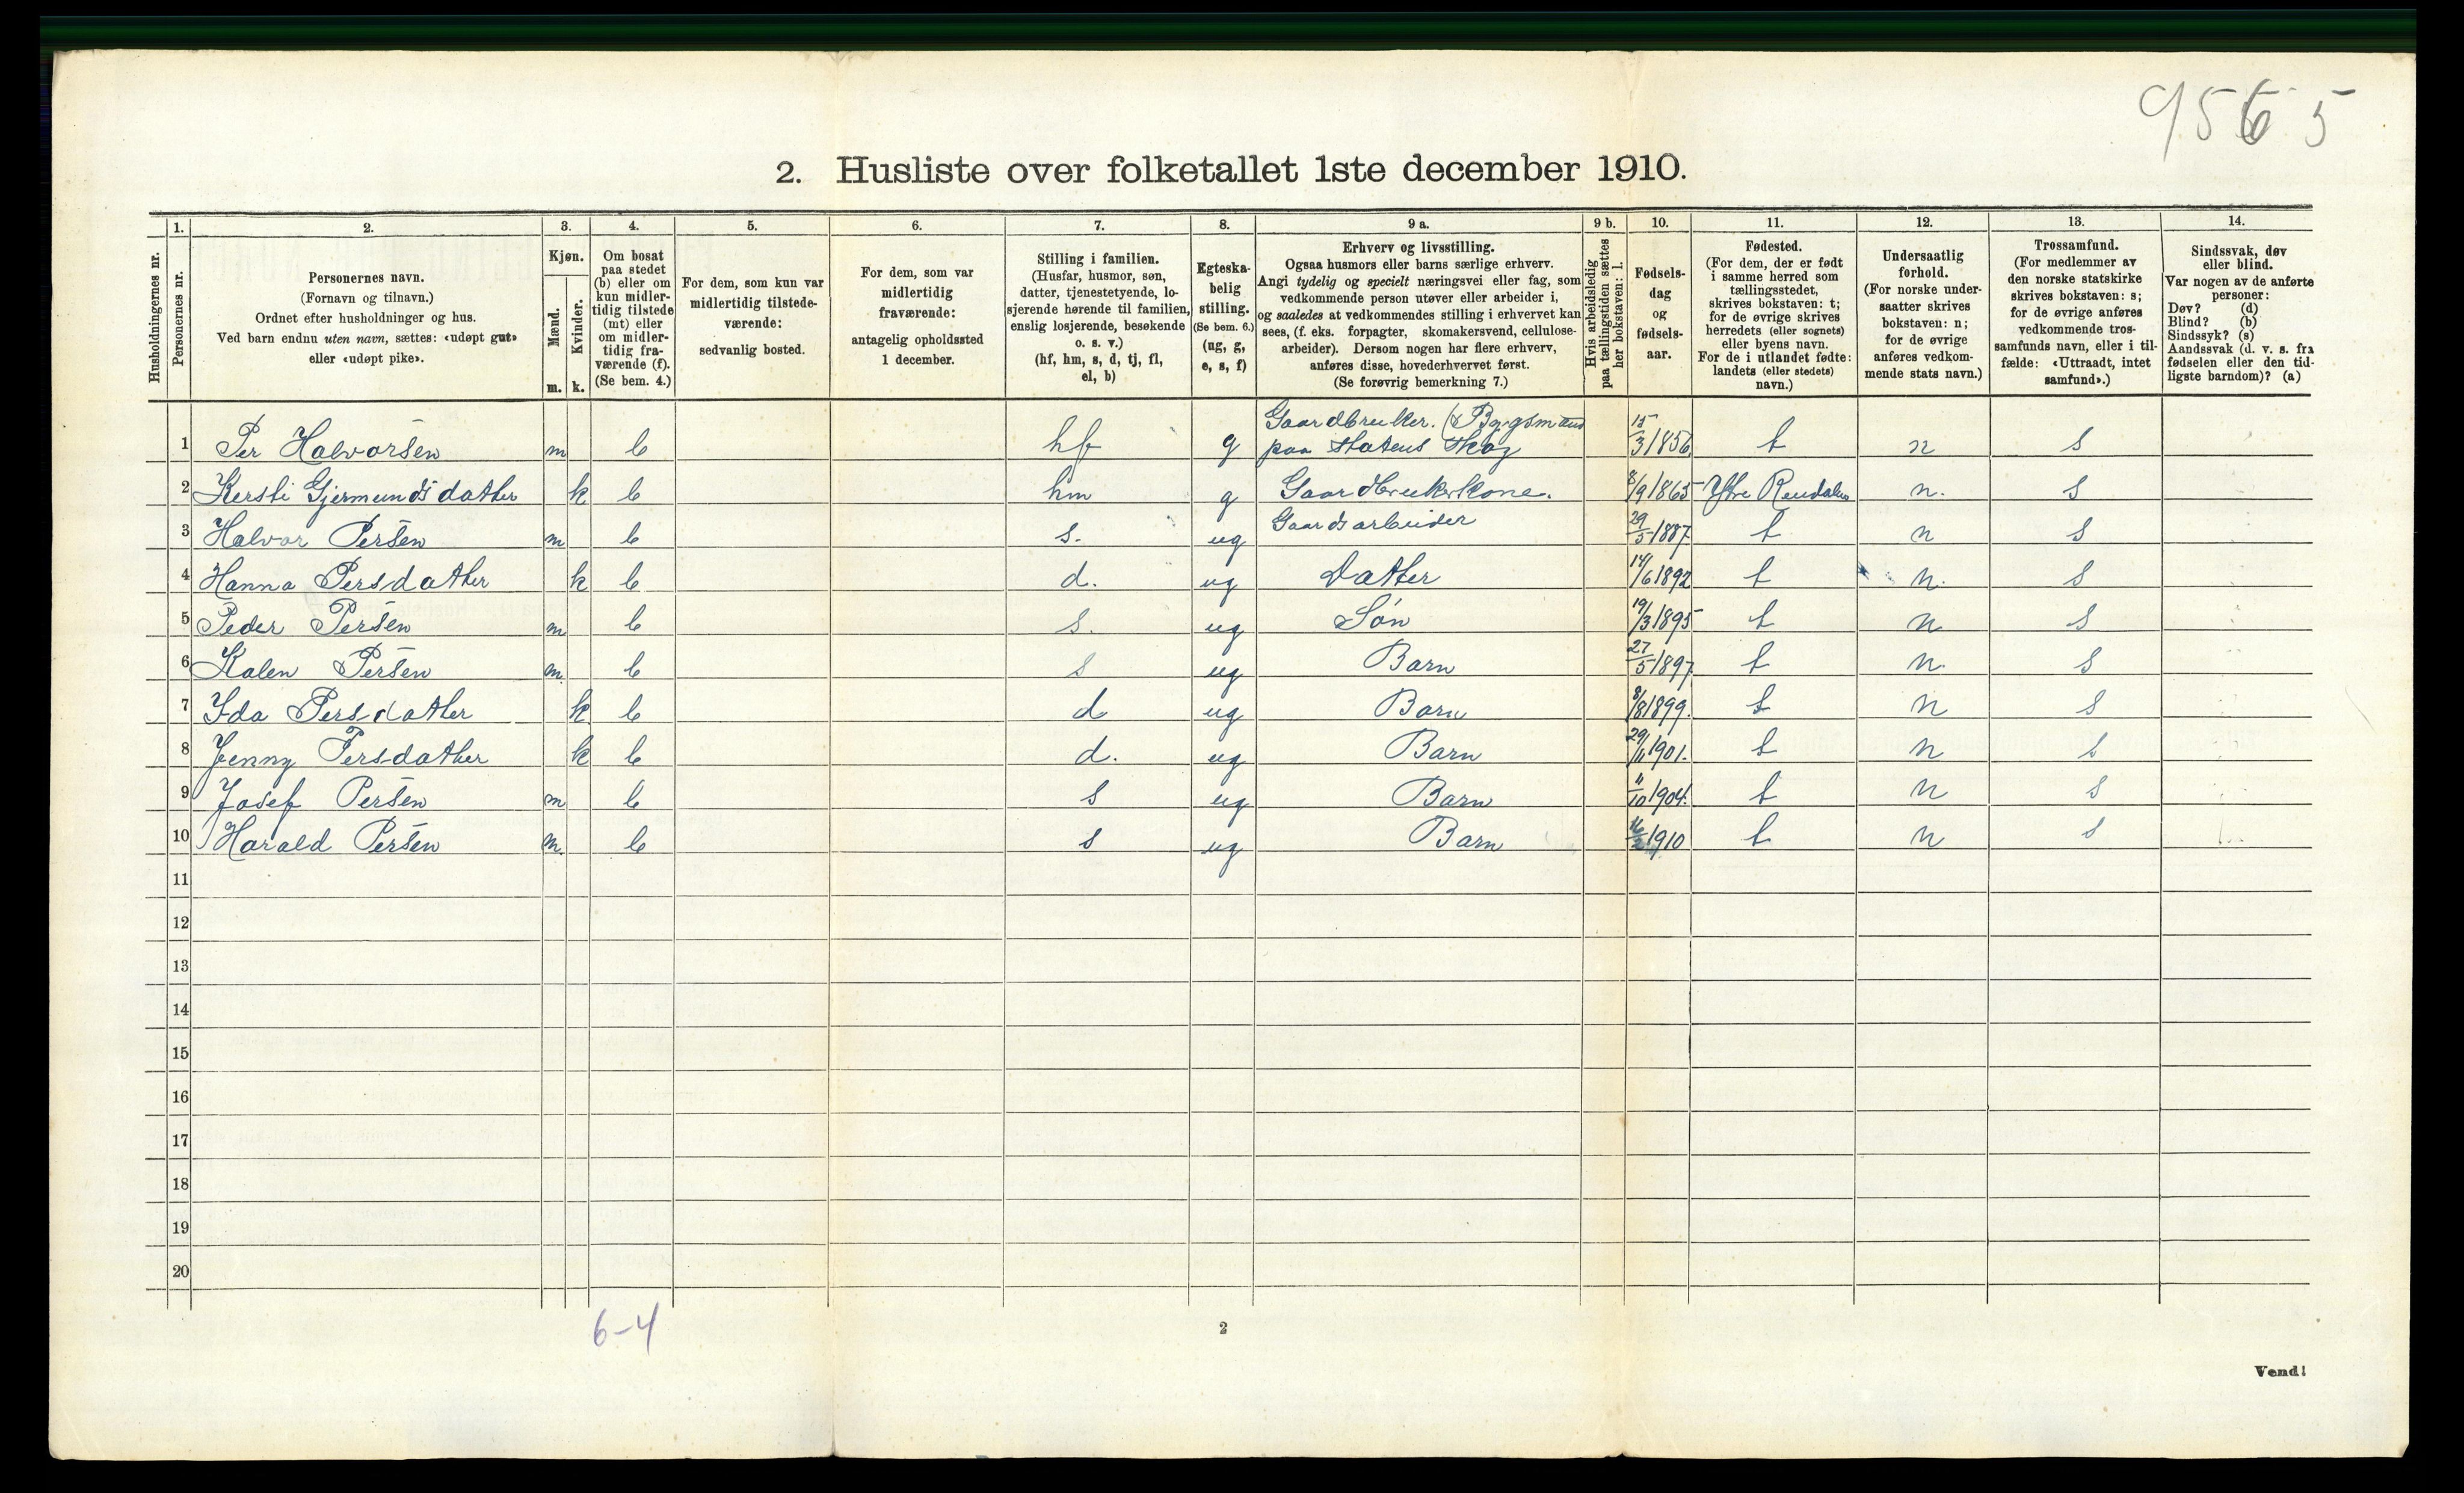 9565
2. Husliste over folketallet 1ste december 1910.
1. 2. 3. 4. 5. 6. 7. 8. 9 a. 9 b. 10. 11. 12. 13. 14.
Husholdningernes nr.
Personernes nr.
Personernes navn.
(Fornavn og tilnavn.)
Ordnet efter husholdninger og hus.
Ved barn endnu uten navn, sættes: «udøpt gut»
eller «udøpt pike».
Kjøn.
Mænd.
Kvinder.
m. k.
Om bosat
paa stedet
(b) eller om
kun midler-
tidig tilstede
(mt) eller
om midler-
tidig fra-
værende (f).
(Se bem. 4.)
For dem, som kun var
midlertidig tilstede-
værende:
sedvanlig bosted.
For dem, som var
midlertidig
fraværende:
antagelig opholdssted
1 december.
Stilling i familien.
(Husfar, husmor, søn,
datter, tjenestetyende, lo-
sjerende hørende til familien,
enslig losjerende, besøkende
o. s. v.)
(hf, hm, s, d, tj, fl,
el, b)
Egteska-
belig
stilling.
(Se bem. 6.)
(ug, g,
e, s, f)
Erhverv og livsstilling.
Ogsaa husmors eller barns særlige erhverv.
Angi tydelig og specielt næringsvei eller fag, som
vedkommende person utøver eller arbeider i,
og saaledes at vedkommendes stilling i erhvervet kan
sees, (f. eks. forpagter, skomakersvend, cellulose-
arbeider). Dersom nogen har flere erhverv,
anføres disse, hovederhvervet først.
(Se forøvrig bemerkning 7.)
Hvis arbeidsledig
paa tællingstiden sættes
her bokstaven: l.
Fødsels-
dag
og
fødsels-
aar.
Fødested.
(For dem, der er født
i samme herred som
tællingsstedet,
skrives bokstaven: t;
for de øvrige skrives
herredets (eller sognets)
eller byens navn.
For de i utlandet fødte:
landets (eller stedets)
navn.)
Undersaatlig
forhold.
(For norske under-
saatter skrives
bokstaven: n;
for de øvrige
anføres vedkom-
mende stats navn.)
Trossamfund.
(For medlemmer av
den norske statskirke
skrives bokstaven: s;
for de øvrige anføres
vedkommende tros-
samfunds navn, eller i til-
fælde: «Uttraadt, intet
samfund».)
Sindssvak, døv
eller blind.
Var nogen av de anførte
personer:
Døv? (d)
Blind? (b)
Sindssyk? (s)
Aandssvak (d. v. s. fra
fødselen eller den tid-
ligste barndom)? (a)
1 Per Halvorsen m b hf g Gaardbruker. (Bygsmand paa Statens Skog 15/3 1856. t n s
2 Kersti Gjermundsdatter k b hm g Gaardbrukerkone. 8/9 1865 Ytre Rendalen n. s
3 Halvor Persen m b s. ug Gaardsarbeider 29/5 1887. t n s
4 Hanna Persdatter k b d. ug Datter 14/6 1892 t n. s
5 Peder Persen m b s. ug Søn 19/3 1895 t n s
6 Kalen Persen m. b s ug Barn 27/5 1897. t n. s
7 Ida Persdatter k b d ug Barn 8/8 1899. t n s
8 Jenny Persdatter k b d. ug Barn 29/11 1901. t n s
9 Josef Persen m b s ug Barn 11/10 1904. t n s
10 Harald Persen m. b s ug Barn 16/2 1910 t n s
11
12
13
14
15
16
17
18
19
20
6-4
2
Vend!